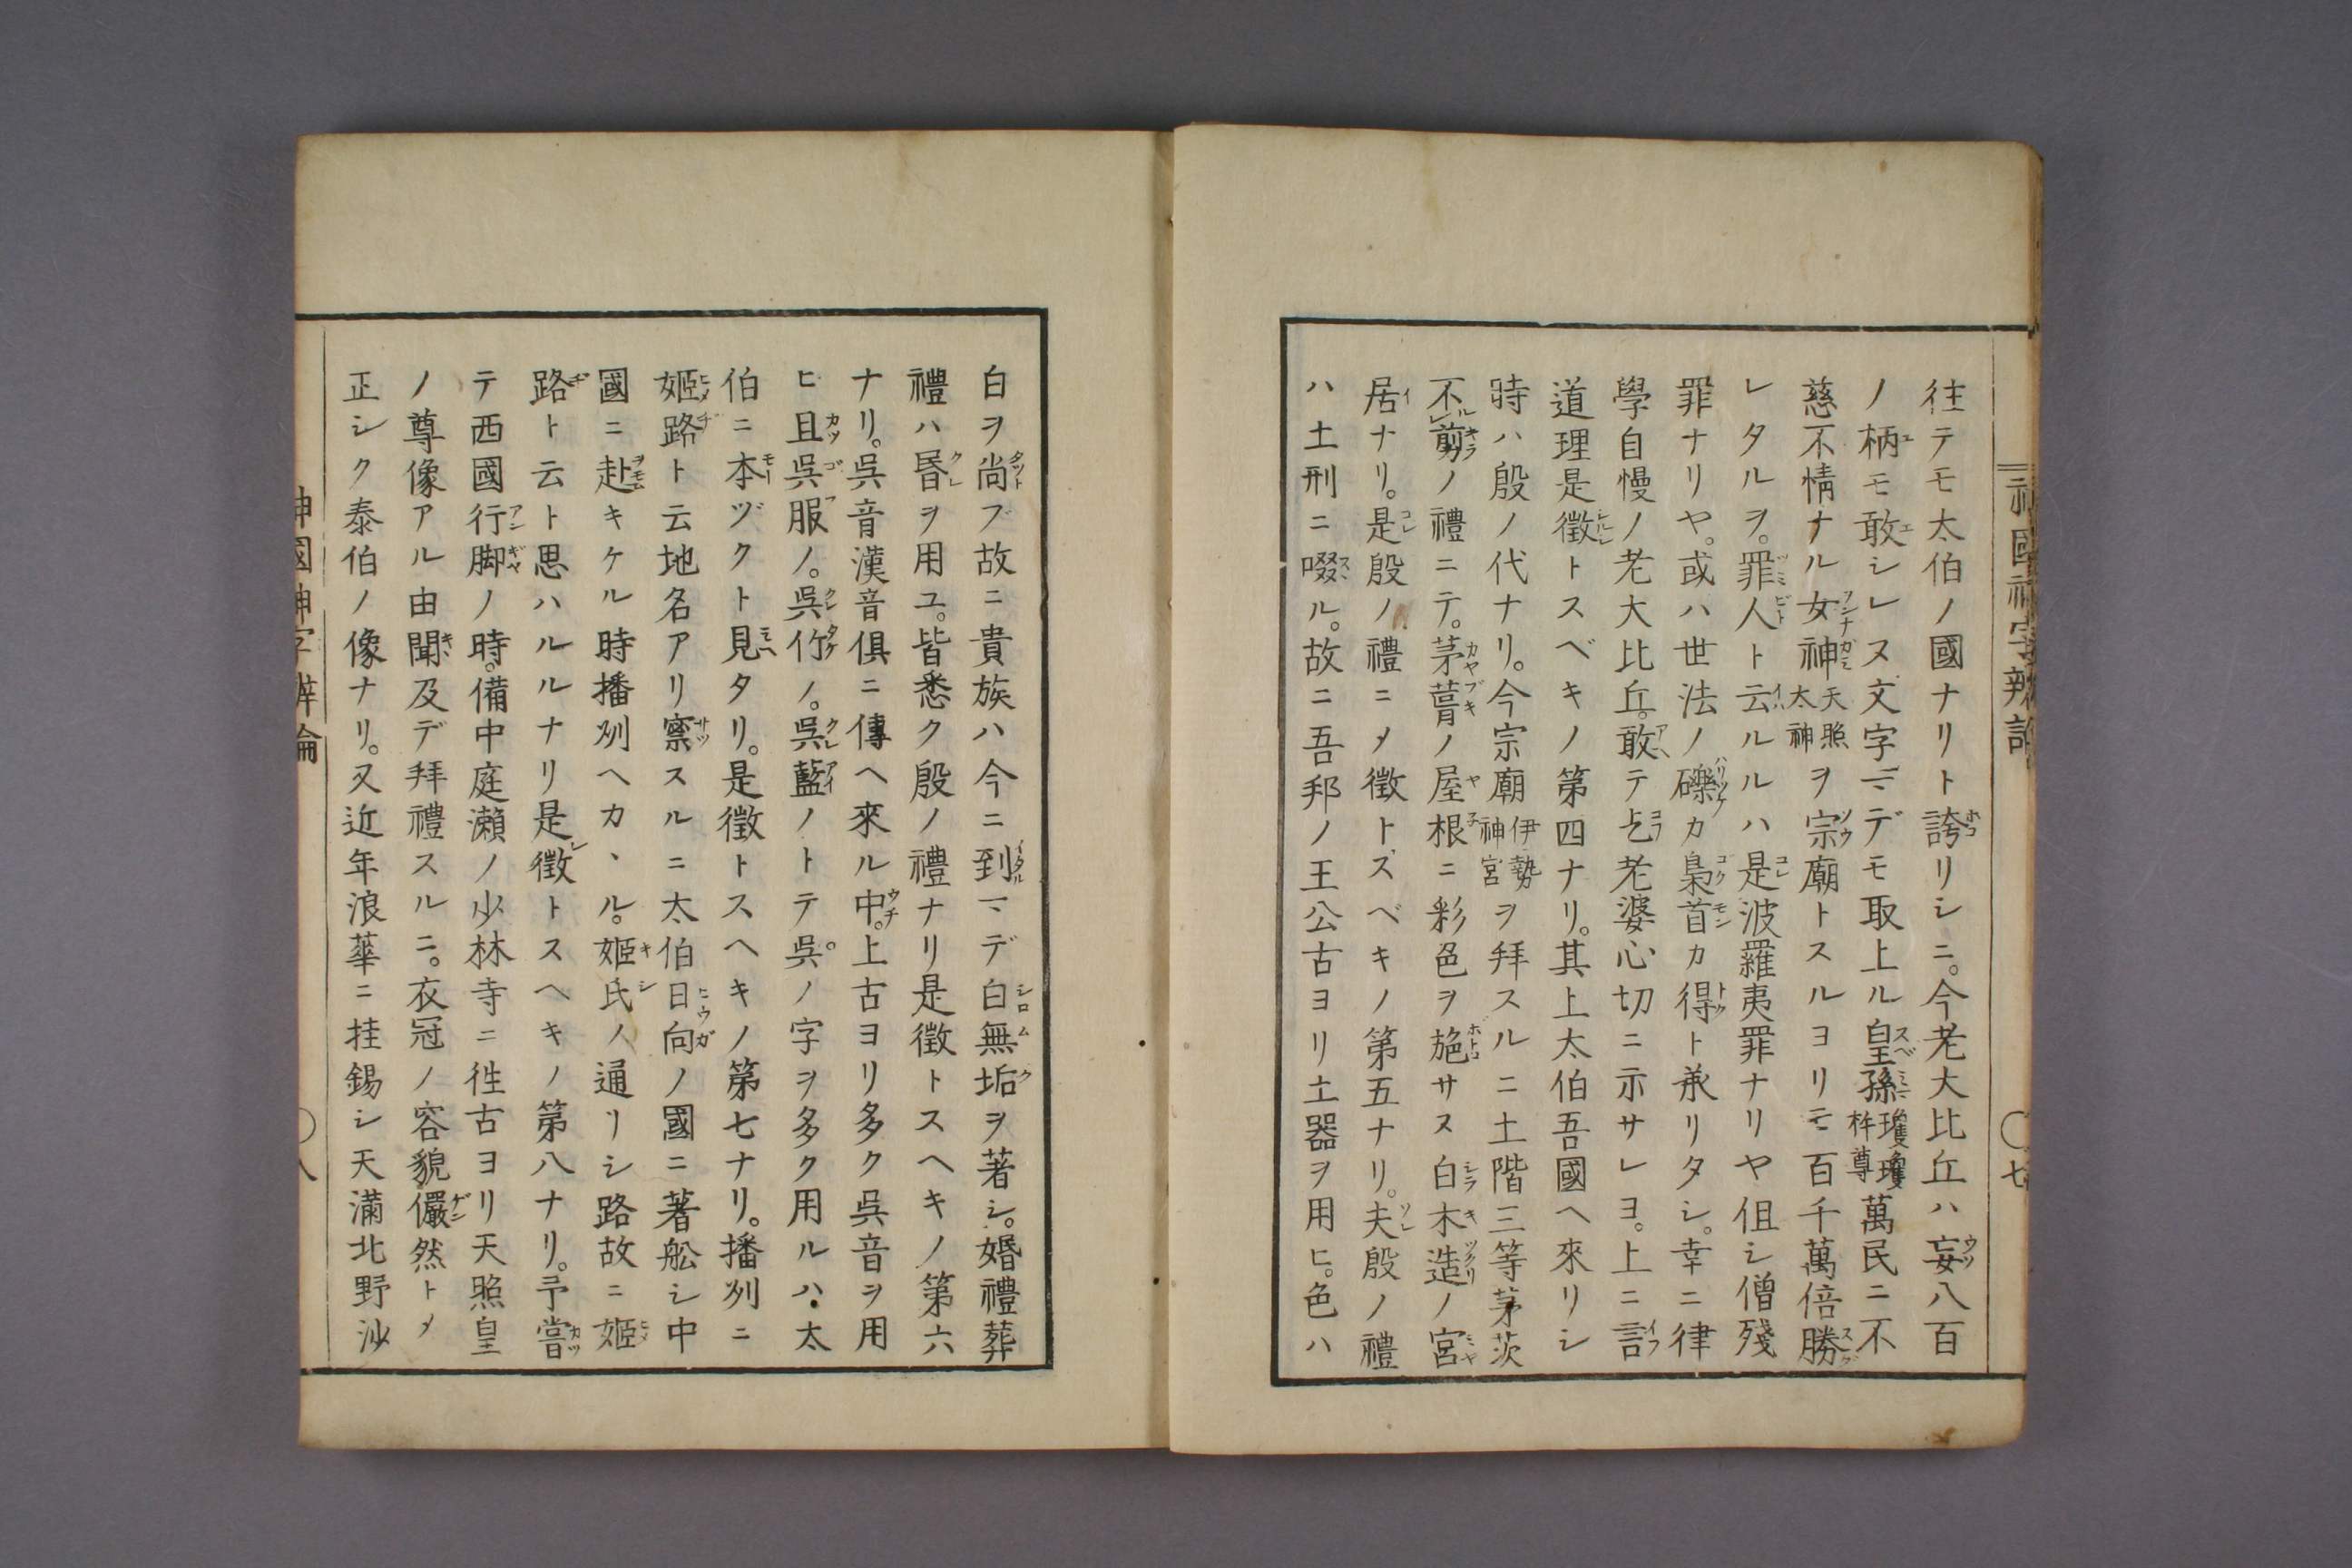 神國神字辨論 〇七
往テモ太伯ノ國ナリト誇リシニ。今老大比丘ハ妄八百
ノ柄モ敢シレヌ文字マデモ取上ル皇孫瓊瓊杵尊萬民ニ不
慈不情ナル女神天照太神ヲ宗廟トスルヨリモ百千萬倍勝
レタルヲ。罪人ト云ルルハ是波羅夷罪ナリヤ伹シ僧殘
罪ナリヤ。或ハ世法ノ磔カ梟首カ得ト承リタシ。幸ニ律
學自慢ノ老大比丘。敢テ乞老婆心切ニ示サレヨ。上ニ言
道理是徵トスベキノ第四ナリ。其上太伯吾國ヘ來リシ
時ハ殷ノ代ナリ。今宗廟伊勢神宮ヲ拜スルニ土階三等茅茨
不レ剪ノ禮ニテ。茅葺ノ屋根ニ彩色ヲ施サス白木造ノ宮
居ナリ。是殷ノ禮ニメ徵トスベキノ第五ナリ。夫殷ノ禮
ハ土刑ニ啜ル。故ニ吾邦ノ王公古ヨリ土器ヲ用ヒ。色ハ
白ヲ尚ブ故ニ貴族ハ今ニ到マデ白無垢ヲ著シ。婚禮葬
禮ハ昏ヲ用ユ。皆悉ク殷ノ禮ナリ是徵トスヘキノ第六
ナリ。呉音漢音俱ニ傳ヘ來ル中。上古ヨリ多ク呉音ヲ用
ヒ且呉服ノ。呉竹ノ。呉藍ノトテ呉ノ字ヲ多ク用ルハ太
伯ニ本ヅクト見タリ。是徵トスヘキノ第七ナリ。播刕ニ
姬路ト云地名アリ察スルニ太伯日向ノ國ニ著舩シ中
國ニ赴キケル時播刕ヘカヽル。姬氏ノ通リシ路故ニ姬
路ト云ト思ハルルナリ是徵トスヘキノ第八ナリ。予嘗
テ西國行脚ノ時。備中庭瀬ノ少林寺ニ徃古ヨリ天照皇
ノ尊像アル由聞及デ拜禮スルニ。衣冠ノ容貌儼然トメ
正シク泰伯ノ像ナリ。又近年浪華ニ挂錫シ天滿北野沙
神國神字辨論 〇八